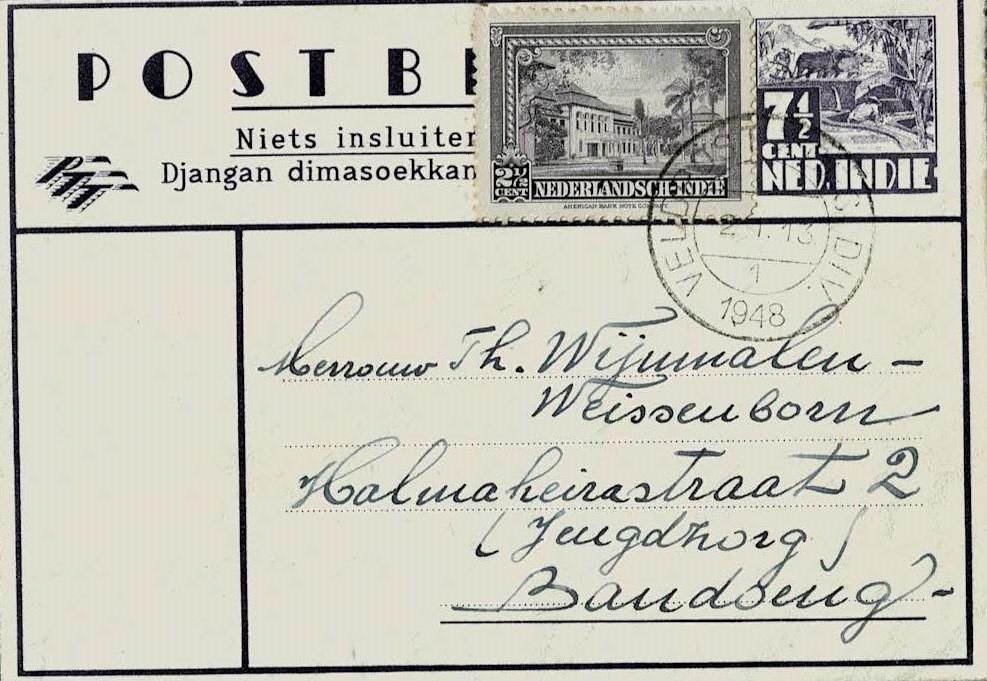 POSTB
Niets insluiten
Djangan dimasoekkan
PTT
2½
CENT
NEDERLANDSCH-INDIE
AMERICAN BANK NOTE COMPANY.
7½
CENT
NED. INDIE
VEL DIV.
2.1.13
1
1948
Merrouw Th. Wijnmalen -
Weissenborn
Halmaheirastraat 2
(Jeugdzorg)
Bandoeng -